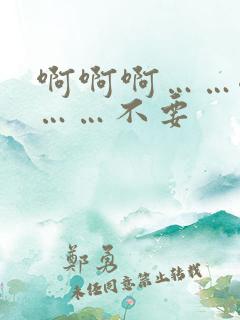 啊啊啊……
……不要
鄭勇
未经同意禁止转载